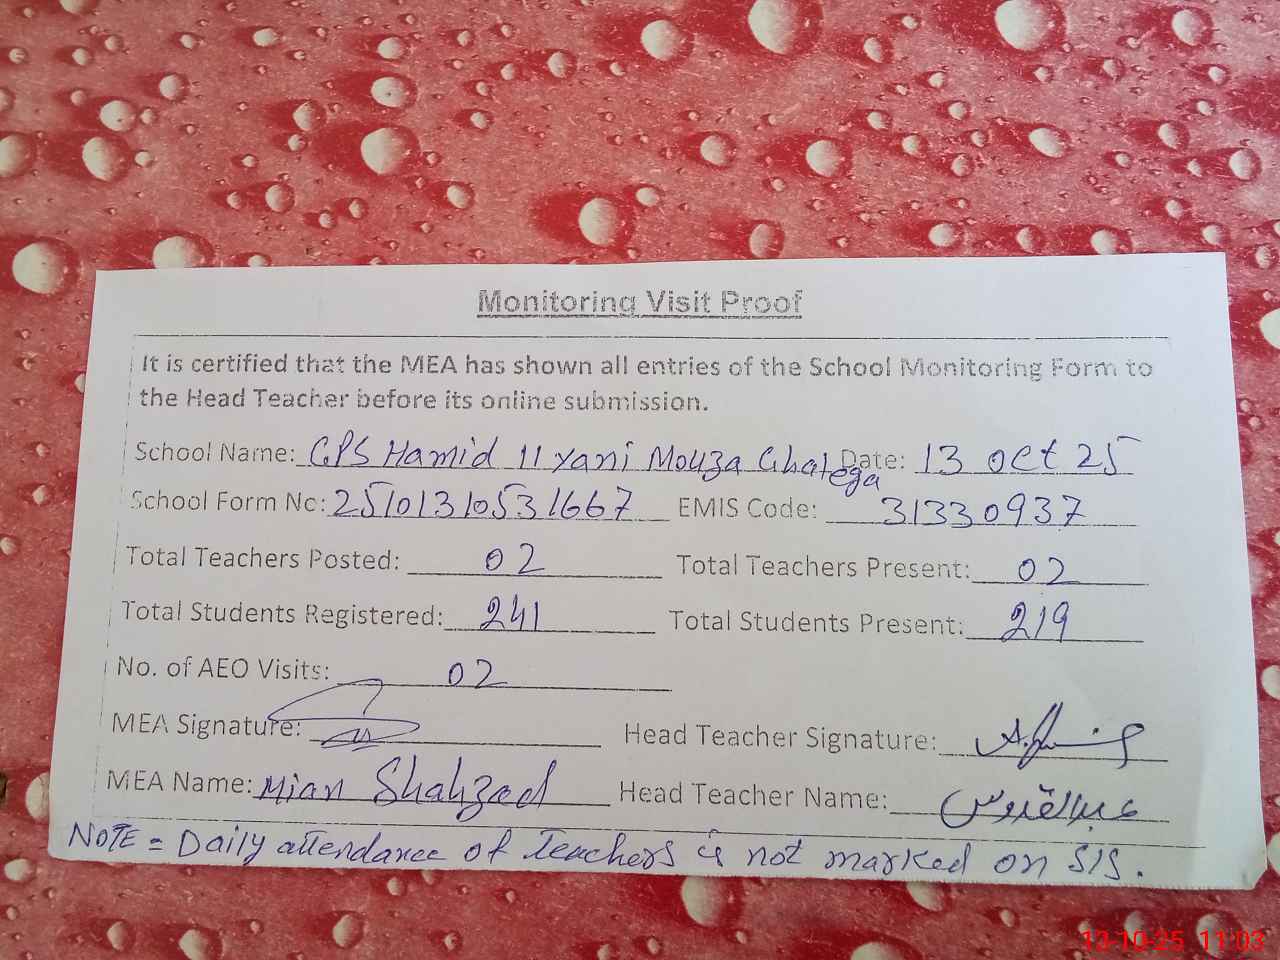 Monitoring Visit Proof
It is certified that the MEA has shown all entries of the School Monitoring Form to
the Head Teacher before its online submission.
School Name: GPS Hamid 11 yani Mouza Ghalega Date: 13 oct 25
School Form No: 2510131053 1667 EMIS Code: 31330937
Total Teachers Posted: 02 Total Teachers Present: 02
Total Students Registered: 241 Total Students Present: 219
No. of AEO Visits: 02
MEA Signature: Head Teacher Signature:
MEA Name: Mian Shahzad Head Teacher Name: عبدالقدوس
NOTE = Daily attendance of teachers is not marked on SIS.
13-10-25 11:03